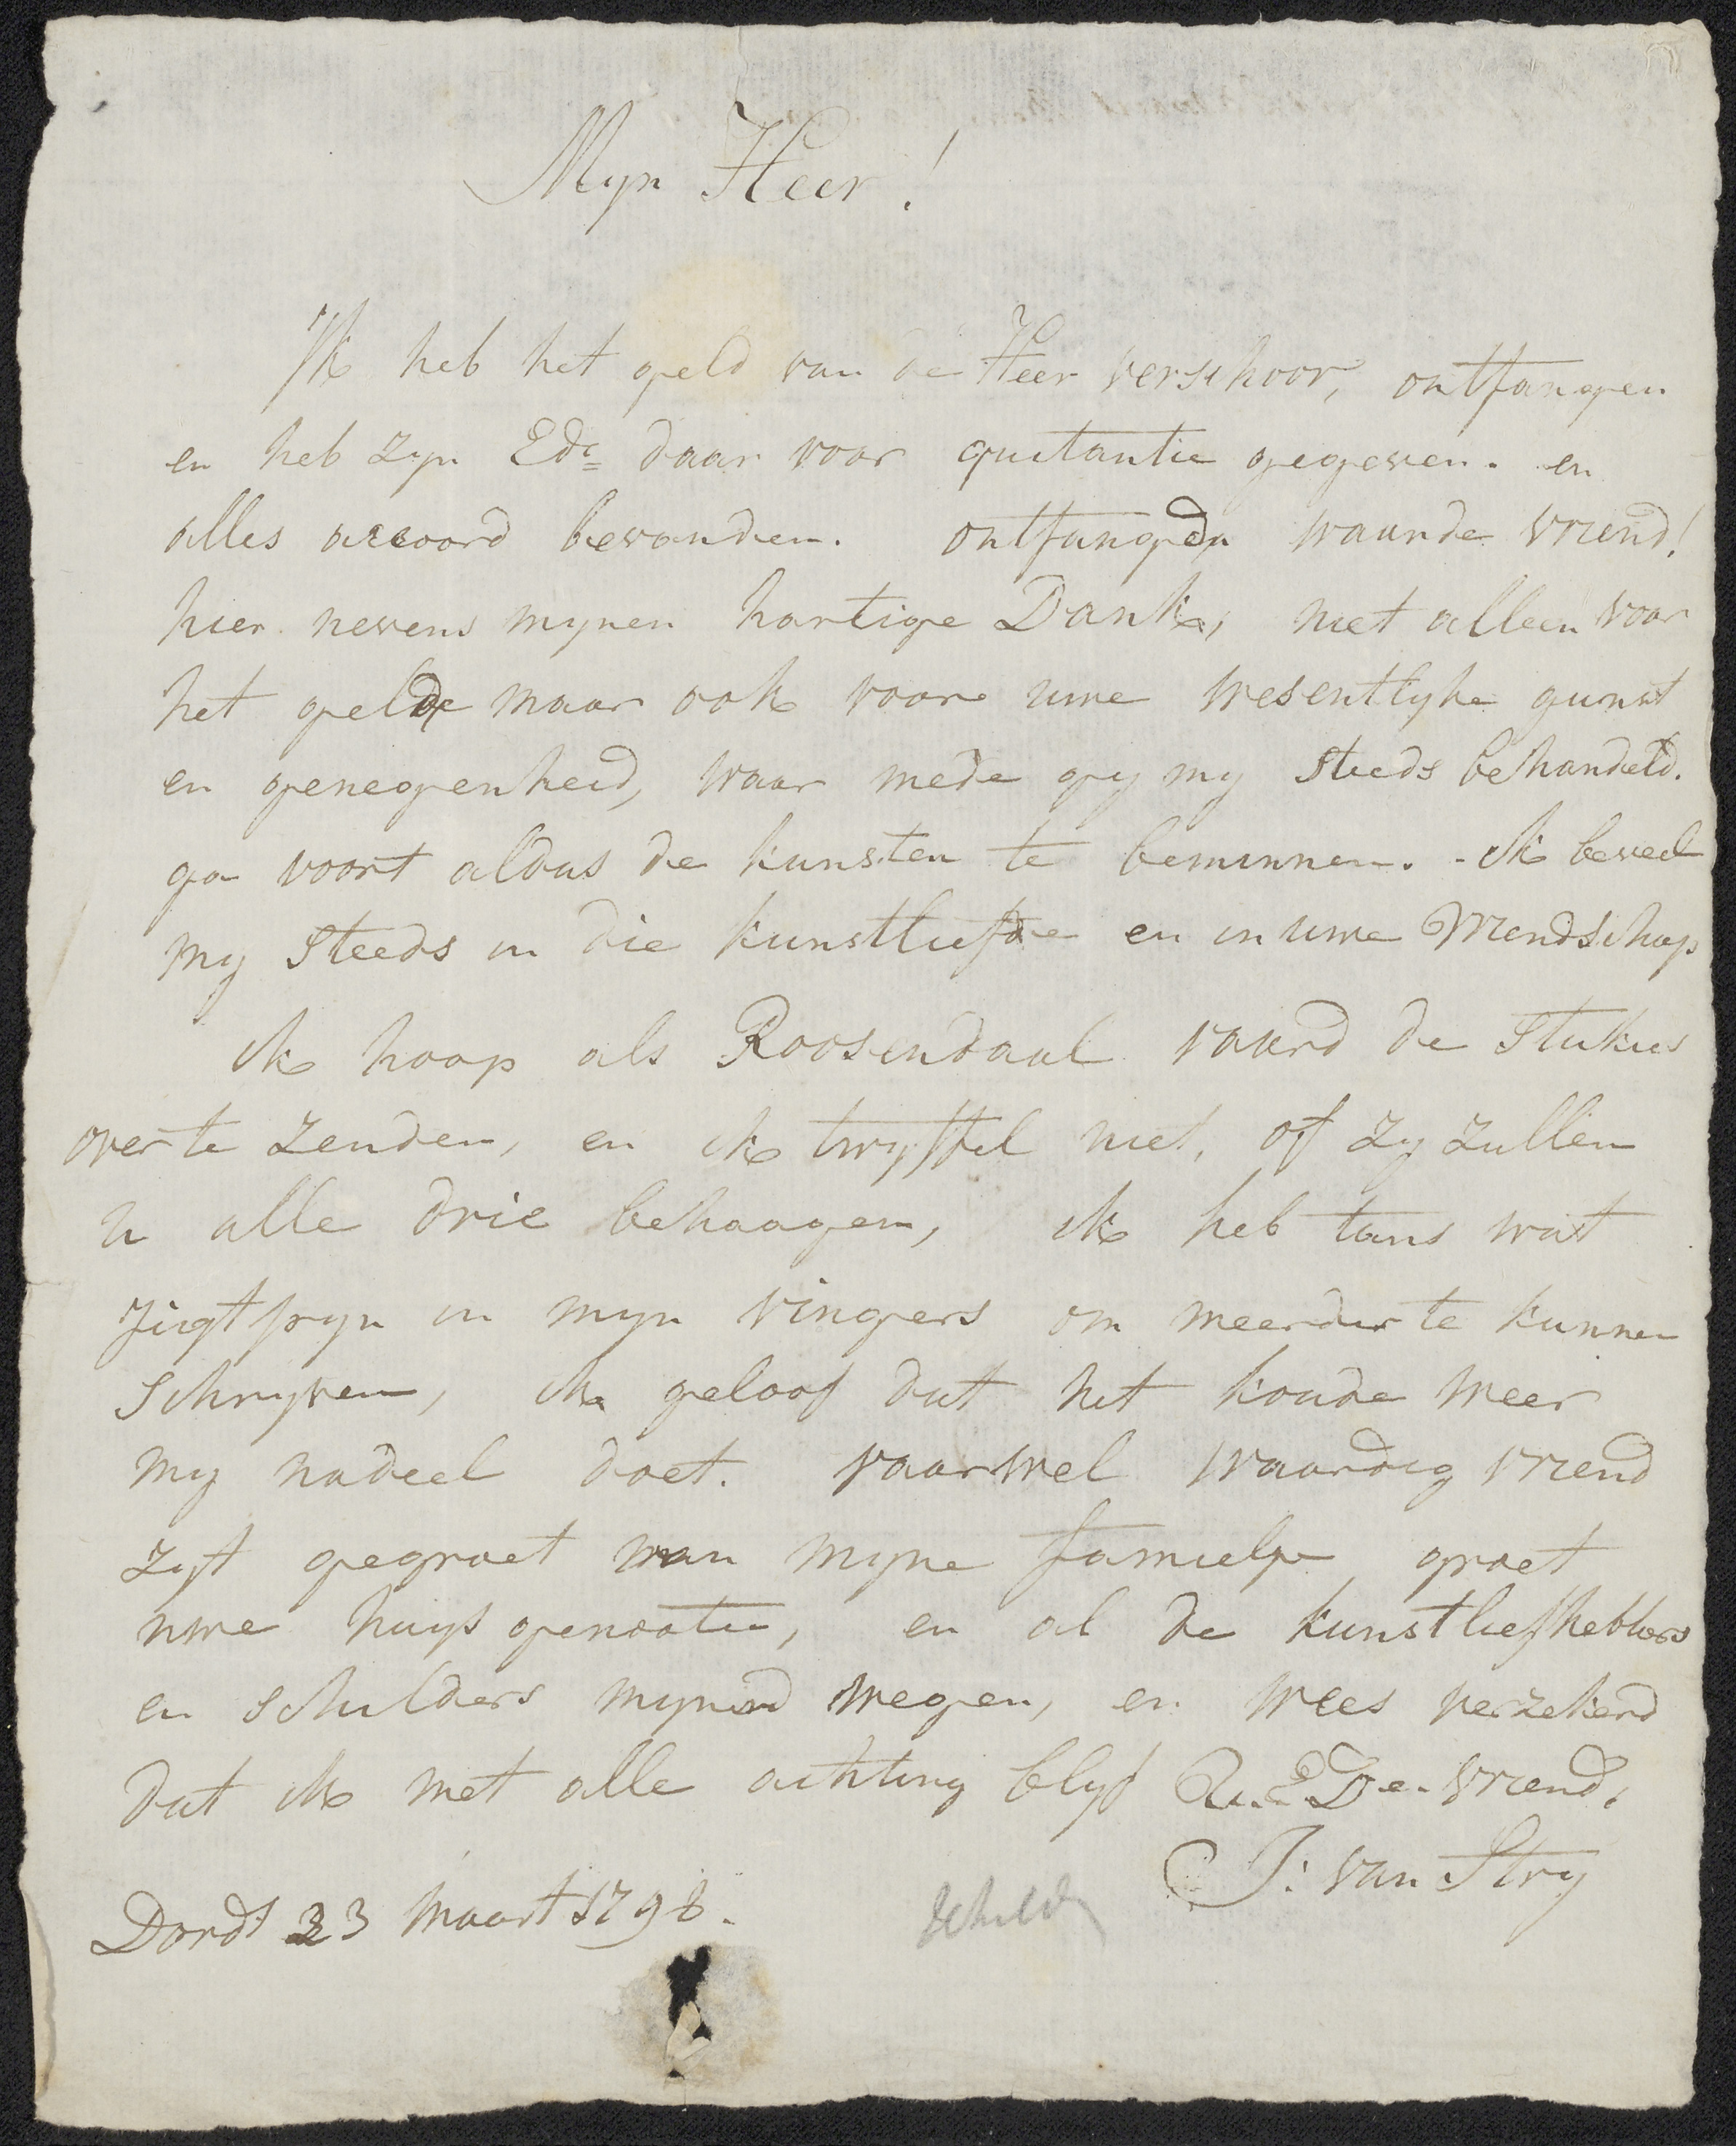 Myn Heer!
Ik heb het geld van de Heer verschoor, ontfangen
en heb zyn Ed: daar voor quitantie gegeven. en
alles accoord bevonden. ontfangd waarde vriend!
hier nevens mynen hartige Dank, niet alleen voor
het geld maar ook voor uwe wesentlyke gunst
en genegenheid, waar mede gy my steeds behandeld.
ga voort aldus de kunsten te beminnen. - ik beveel
my steeds in die kunstliefde en in uwe Vriendschap
ik hoop als Roosendaal vaard de stukies
over te zenden, en ik twyffel niet, of zy zullen
u alle drie behaagen, ik heb tans wat
jigtpyn in myn vingers om meerder te kunnen
schryven, ik geloof dat het koude weer
my nadeel doet. vaarwel waardig vriend
zyt gegroet van myne famielje groet
uwe huys genooten, en al de kunstliefhebbers
en schilders mynend wegen, en wees verzekerd
dat ik met alle achting blyf U.E.De. vriend,
J: van Stry
Dordt 23 Maart 1798.
schild